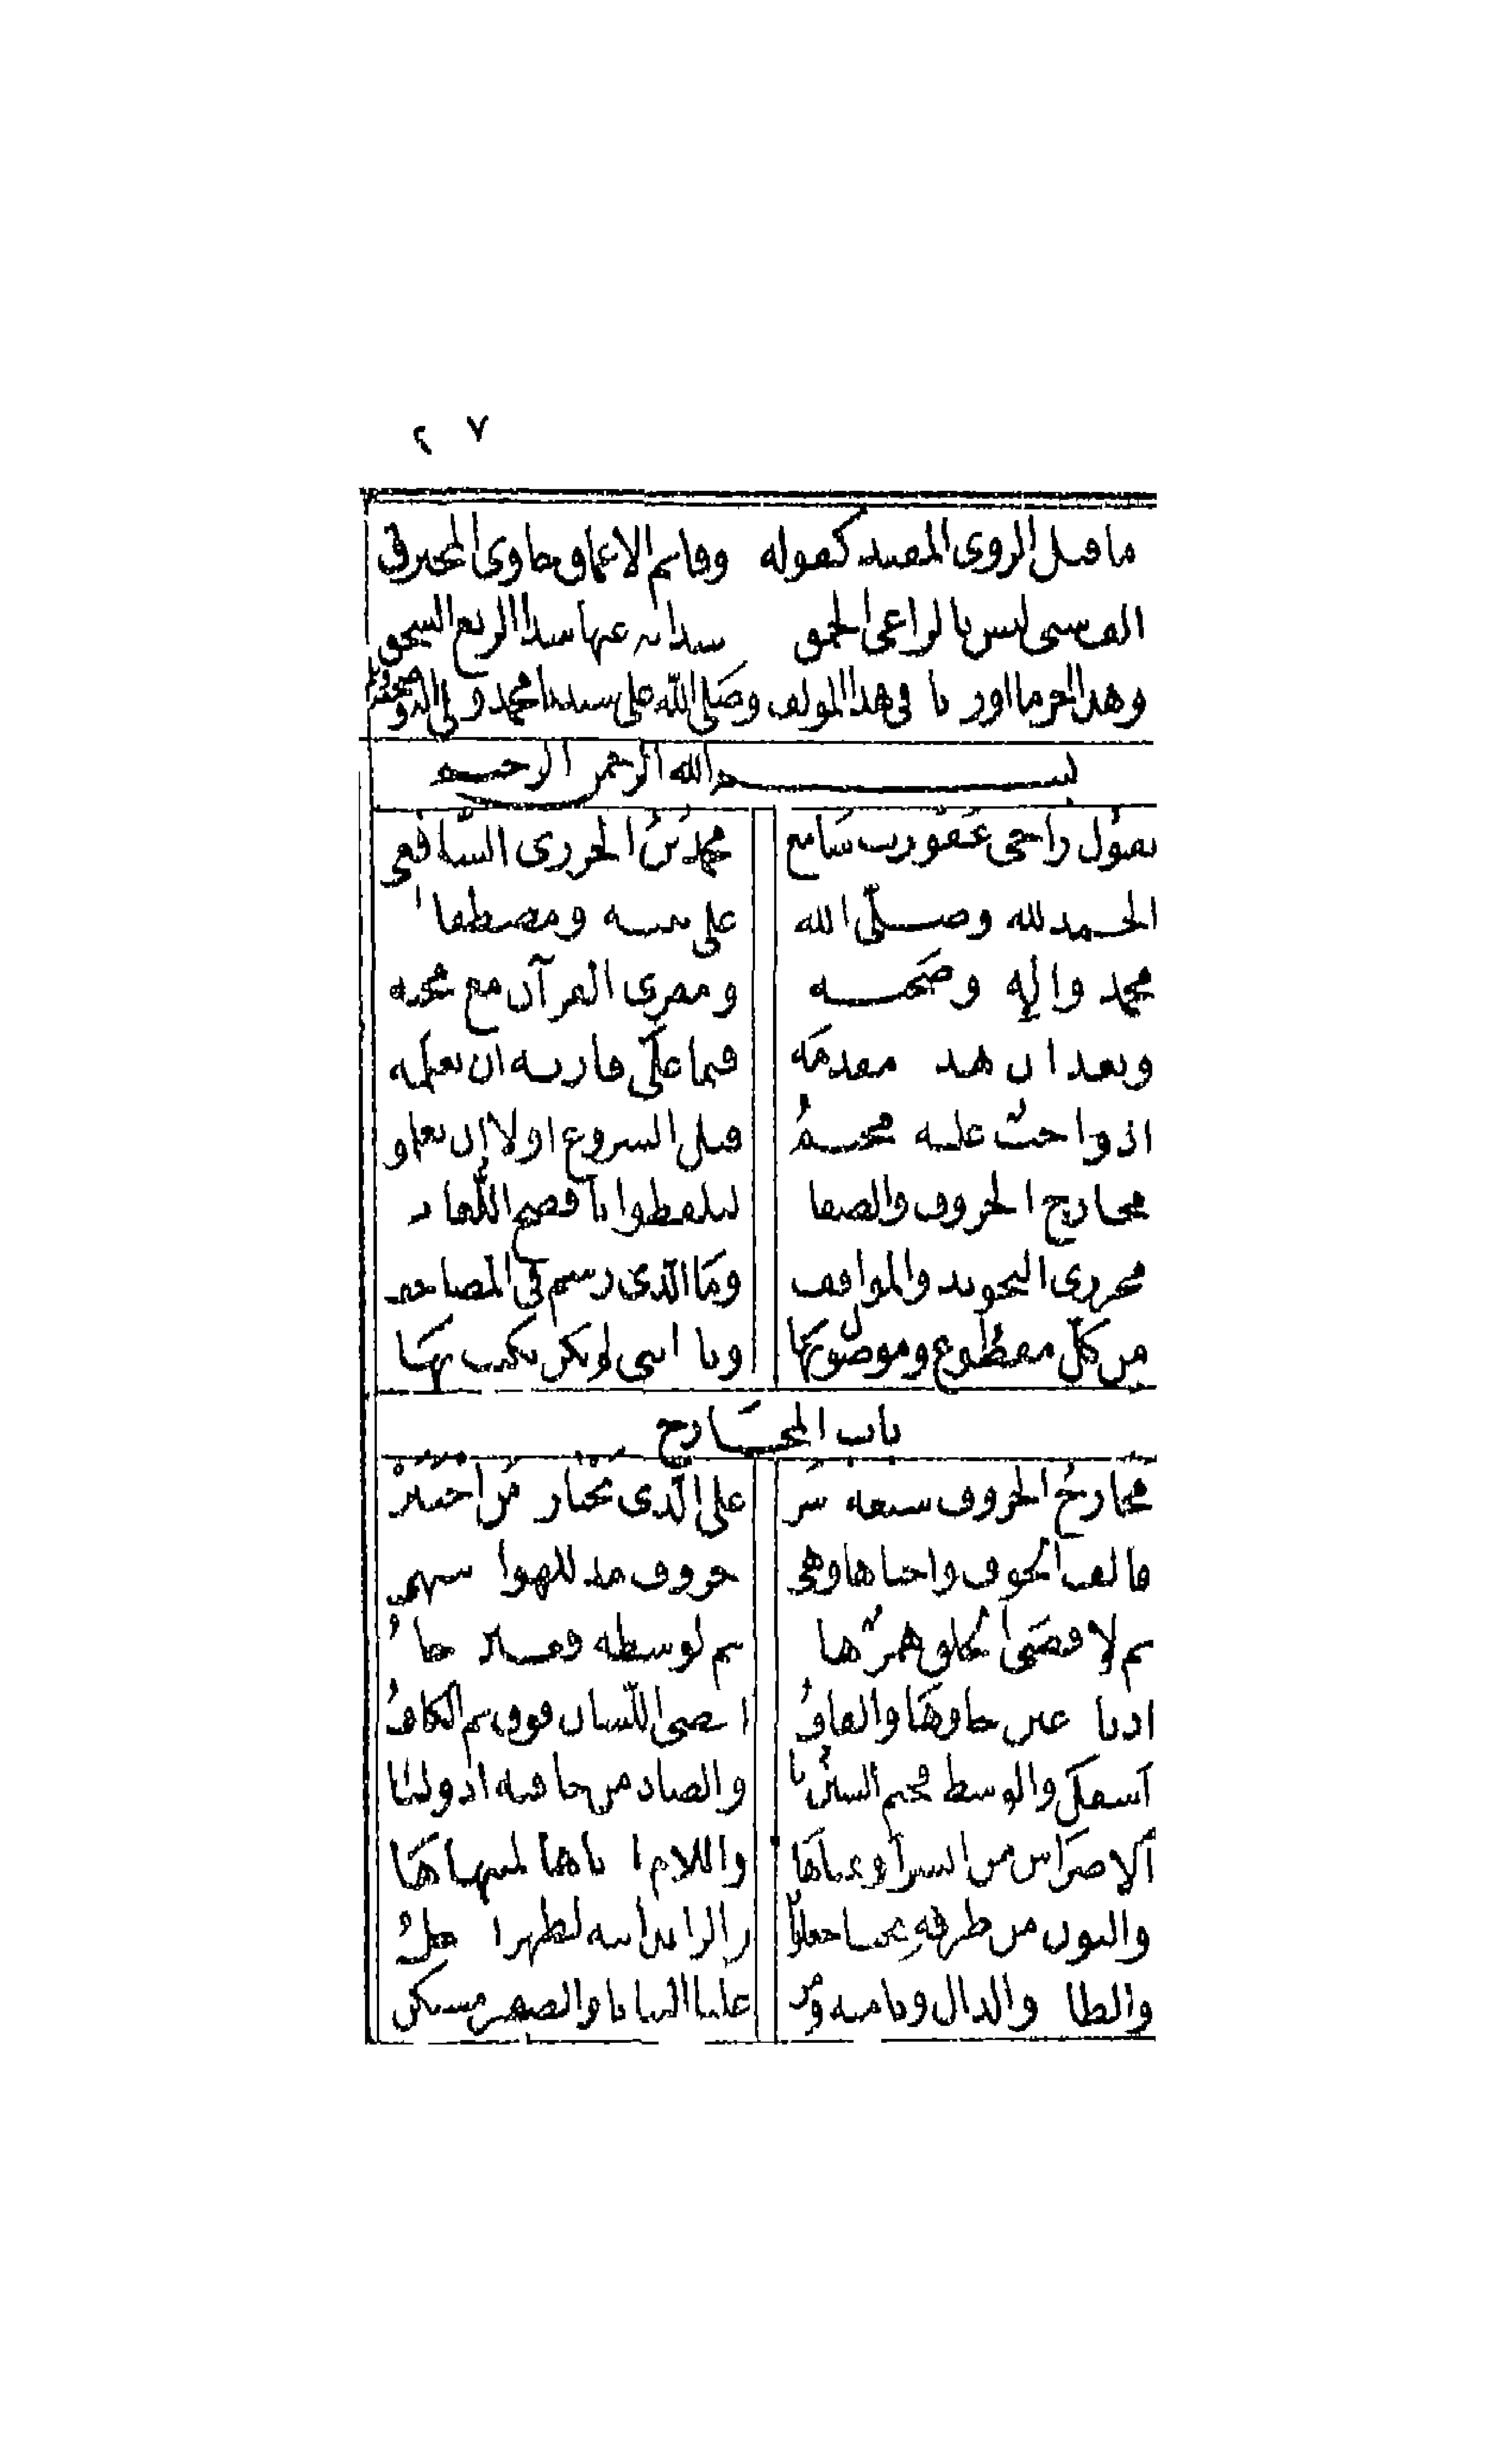 ٢ ٧
ما قبل الروى المقيد كقوله وقاتم الاعماق خاوى المخترق
الف شتى ليس بالراعى الحمق شذابه عنها شذا الربع السحق
وهذا اخر ما اورد نا فى هذا المولف وصلى الله على سيدنا محمد وعلى اله وصحبه وسلم
بسم الله الرحمن الرحيم
يقول راجى عفو رب سامع محمد بن الجزرى الشافعى
الحمد لله وصلى الله على نبيه ومصطفاا
محمد واله وصحبه ومقرى القرآن مع محبه
وبعد ان هذ مقدمه فيما على قاريه ان يعلمه
اذ واجب عليه محتم قبل الشروع اولا ان يعلمو
مخارج الحروف والصفا ليلفظوا بافصح اللغات
محررى التجويد والمواقف وما الذى رسم فى المصاحف
من كل مقطوع وموصول بها وتا انثى لم تكن تكتب بها
باب المخارج
مخارج الحروف سبعة عشر على الذى يختار من اختبر
فالف الجوف واختاها وهى حروف مد للهوا تنتهى
ثم لاقصى الحلق همز ها ثم لوسطه فعين حاء
ادنا غين خاوها والقاف اقصى اللسان فوق ثم الكاف
اسفل والوسط فجيم الشين يا والضاد من حافته اذ وليا
الاضراس من ايسر او يمناها واللام ادناها لمنتهاها
والنون من طرفه تحتا جعلوا والرا يدانيه لظهر ادخل
والطا والدال وتا منه ومن عليا الثنايا والصفير مستكن